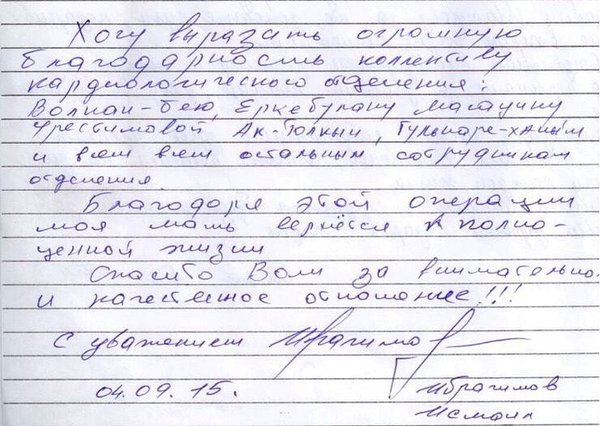 Хочу выразить огромную
благодарность коллективу
кардиологического отделения:
Волкан-бею, Еркебулану Магауину
Ак-Толкын, Гульнаре-ханым
и всем всем остальным сотрудникам
отделения.
Благодоря этой операции
моя мать вернётся к полно-
ценной жизни
Спасибо Вам за внимательно
и качественное отношение!!!
С уважением Ибрагимов
04.09.15.
Ибрагимов
Исмаил